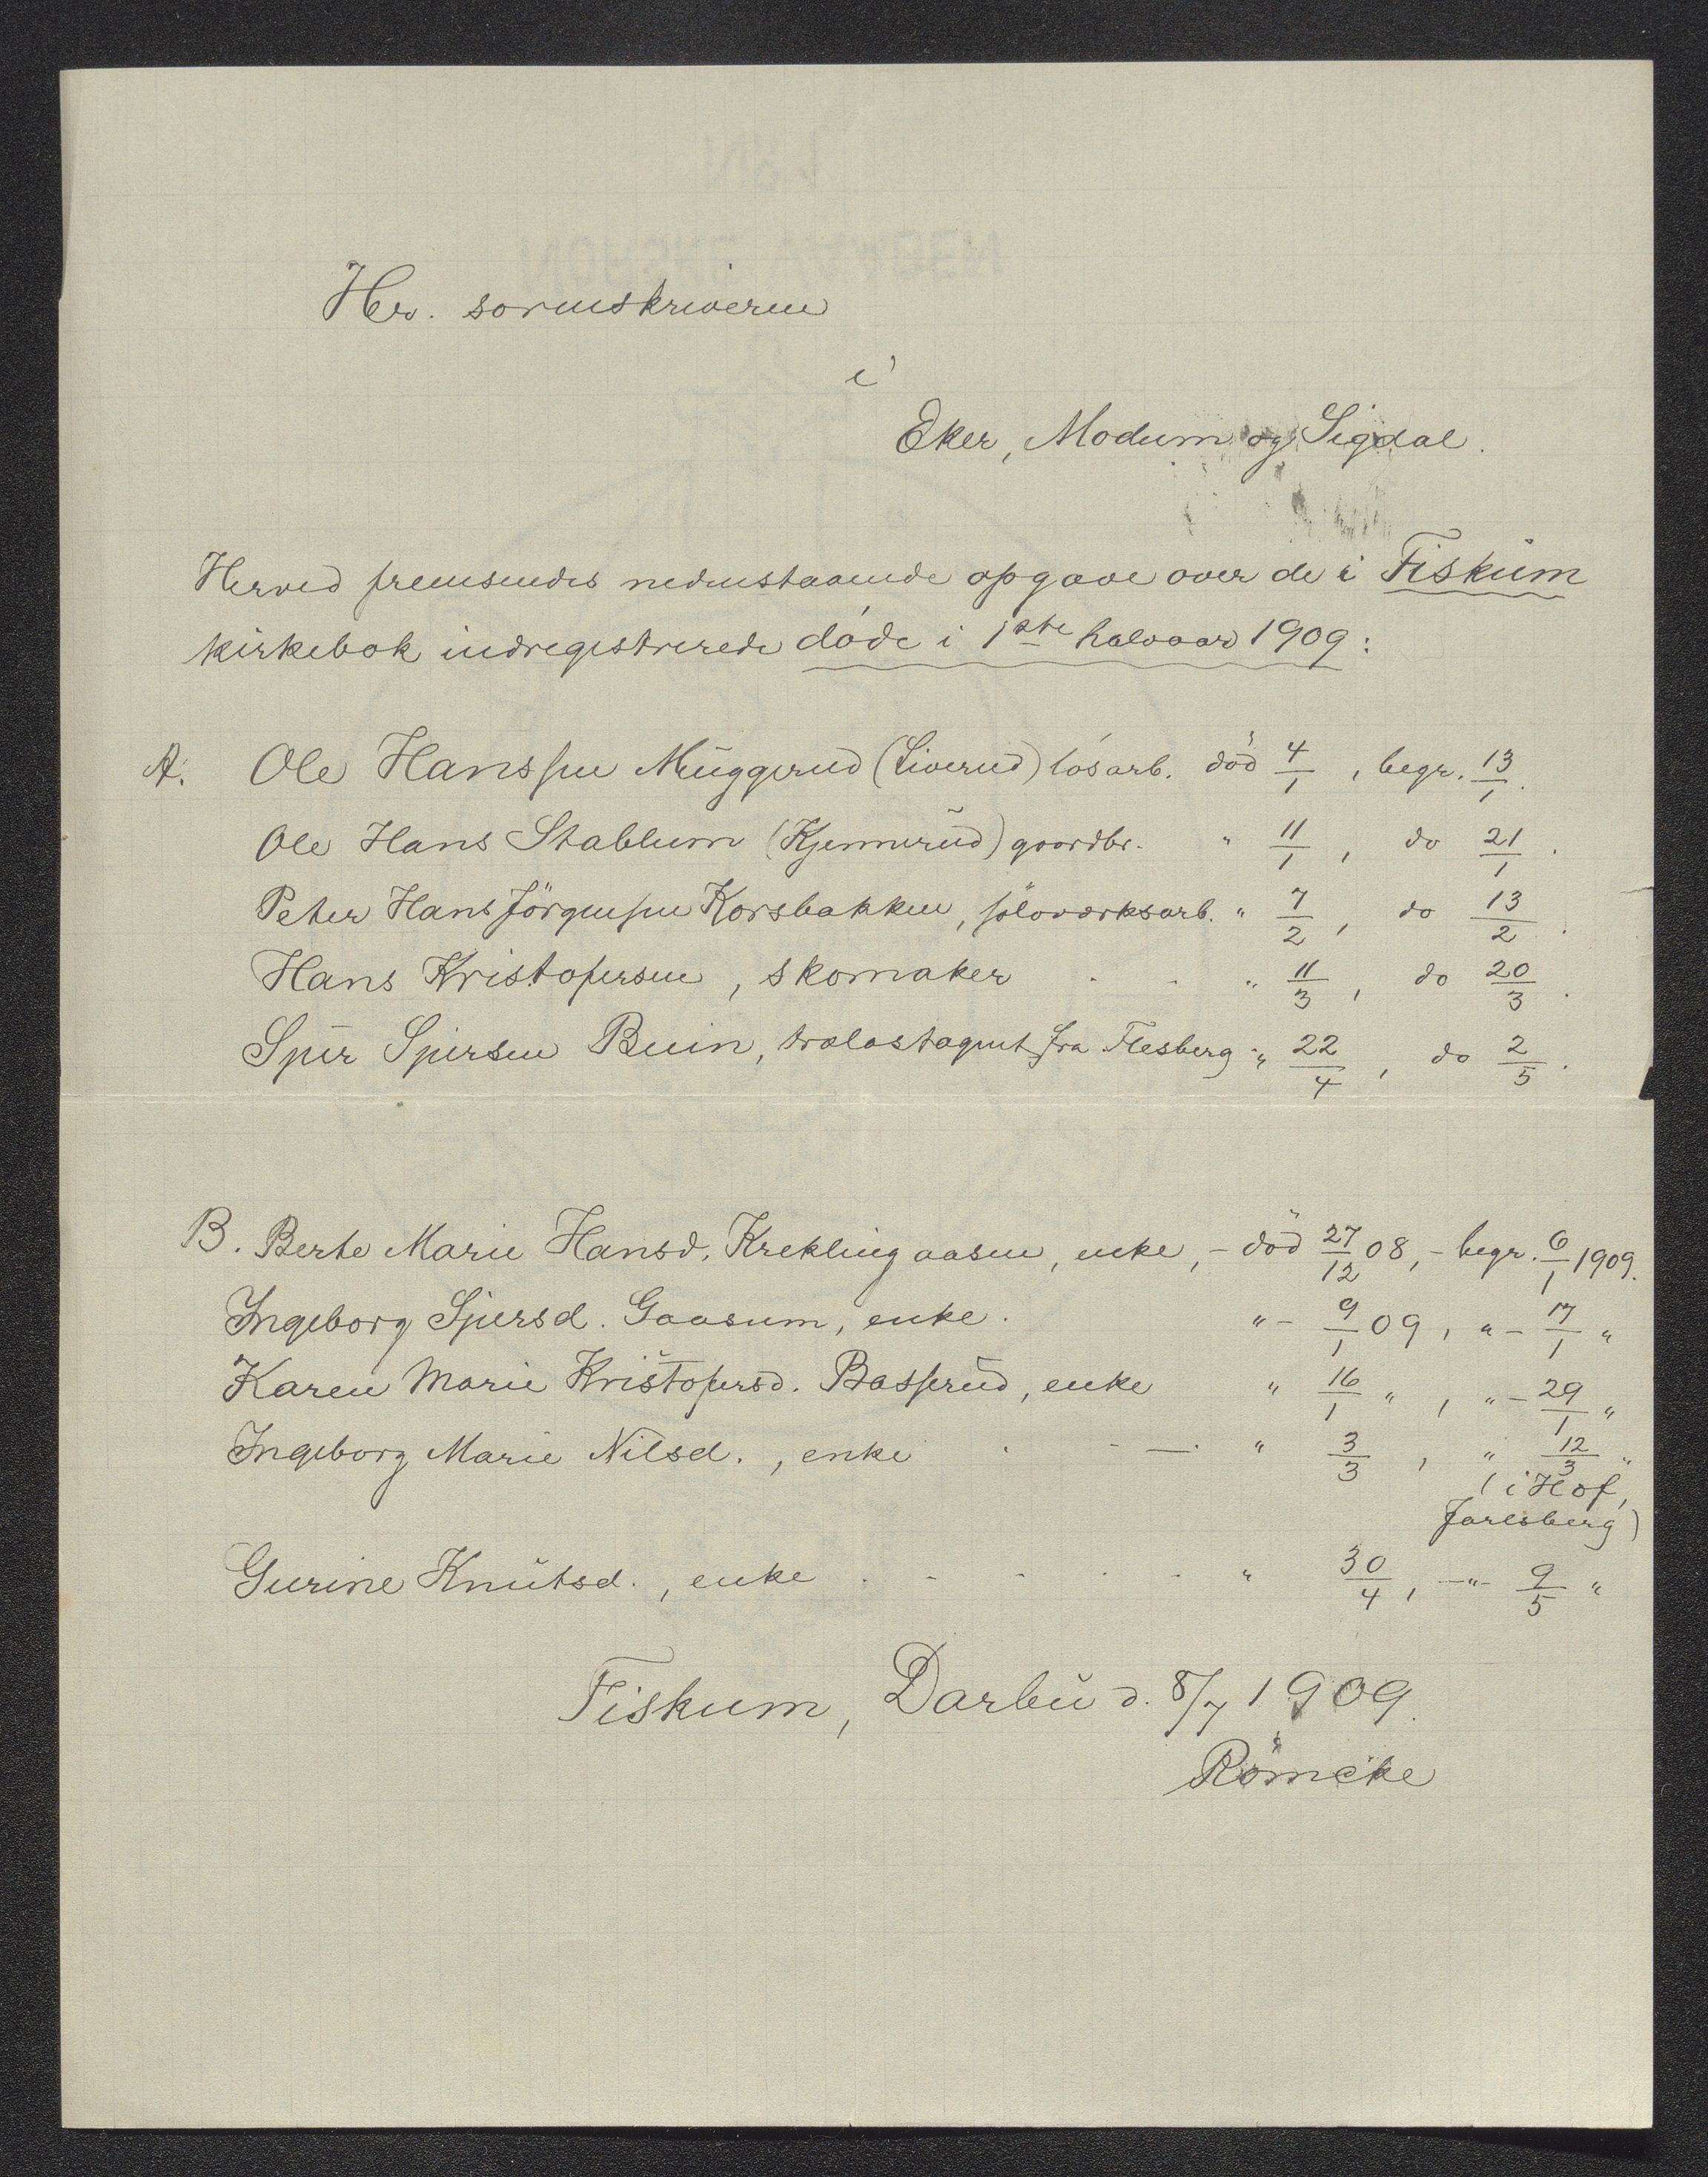 Hr. sorenskriveren
i
Eker, Modum og Sigdal.
Herved fremsendes nedenstaaende opgave over de i Fiskum
kirkebok indregistrerede döde i 1ste halvaar 1909:
A. Ole Hanssen Muggerud (Liverud) lösarb. död 4/1, begr. 13/1.
Ole Hans Stablum (Kjennerud) gaardbr. " 11/1, do 21/1.
Peter Hans Jörgensen Korsbakken, sölvverksarb. " 7/2, do 13/2.
Hans Kristofersen, skomaker " 11/3, do 20/3.
Sper Spersen Buin, trælastagent fra Flesberg " 22/4, do 2/5.
B. Berte Marie Hansd. Kreklingaasen, enke, - död 27/12 08, - begr. 6/1 1909.
Ingeborg Sjersd. Gaasum, enke. " - 9/1 09, " - 17/1 "
Karen Marie Kristofersd. Basserud, enke " 16/1 ", " - 29/1 "
Ingeborg Marie Nilsd., enke . - — . " 3/3, " 12/3 "
(i Hof,
Jarlsberg)
Gurine Knutsd., enke . - - . - " 30/4, -"- 9/5 "
Fiskum, Darbu d. 8/7 1909.
Römcke